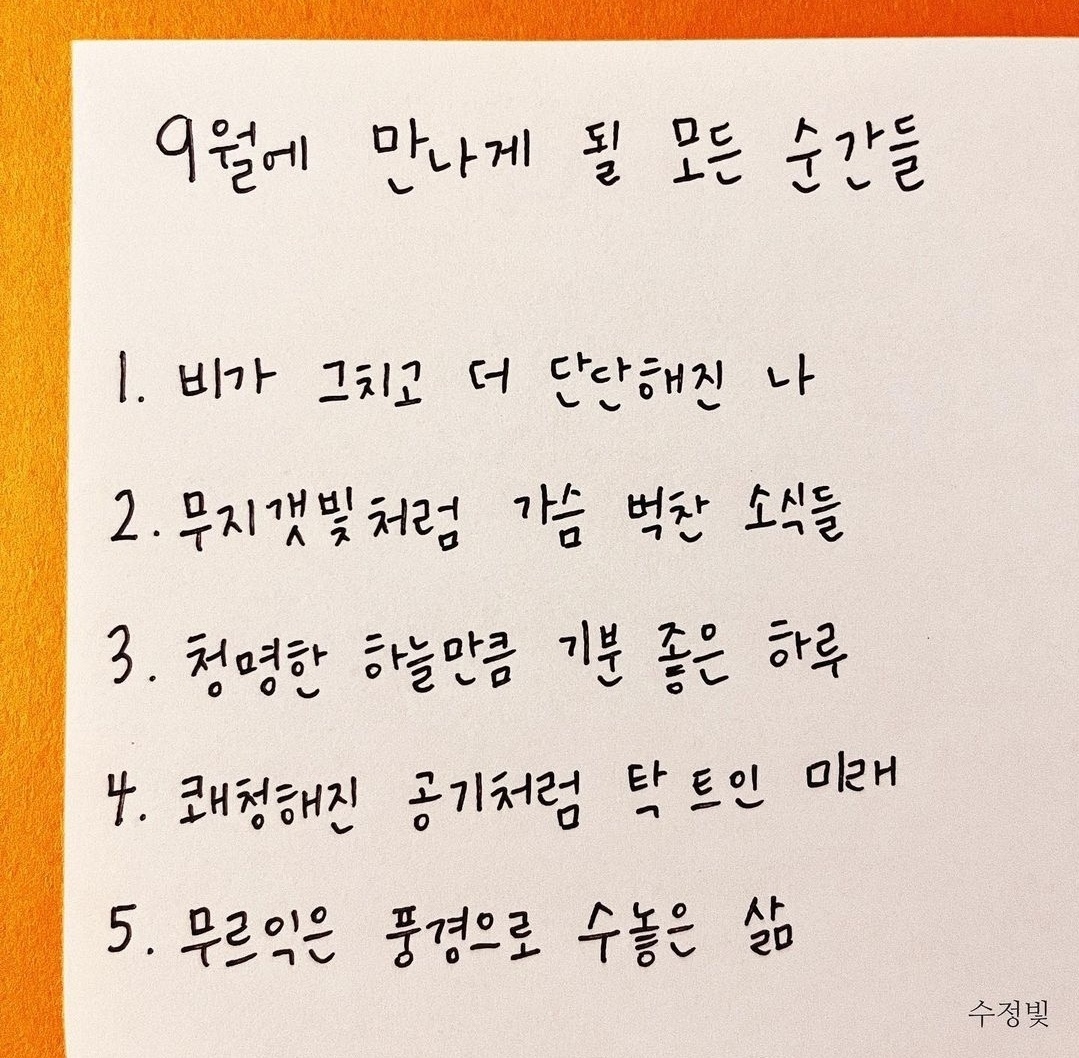 9월에 만나게 될 모든 순간들
1. 비가 그치고 더 단단해진 나
2. 무지갯빛처럼 가슴 벅찬 소식들
3. 청명한 하늘만큼 기분 좋은 하루
4. 쾌청해진 공기처럼 탁 트인 미래
5. 무르익은 풍경으로 수놓은 삶
수정빛